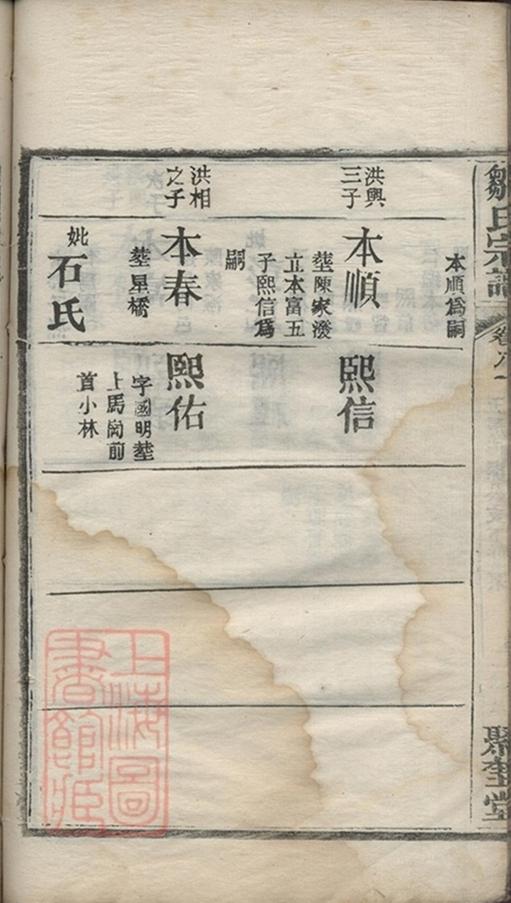 鄒氏宗譜
卷六
聚奎堂
本順爲嗣
洪興
三子
本順
塟陳家潑
立本富五
子熙信爲
嗣
熙信
洪相
之子
本春
塟星橋
妣
石氏
熙佑
字國明塟
上馬崗前
首小林
上海圖
書館藏